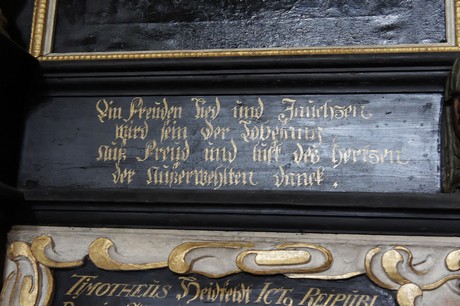 Ein Freuden Lied und Jauchsen
wird sein der Lobgesang
Auß Freud und lust des Hertsen
der Außerwehlten danck.
Timotheus Heidfeldt ICT9 REIPUB